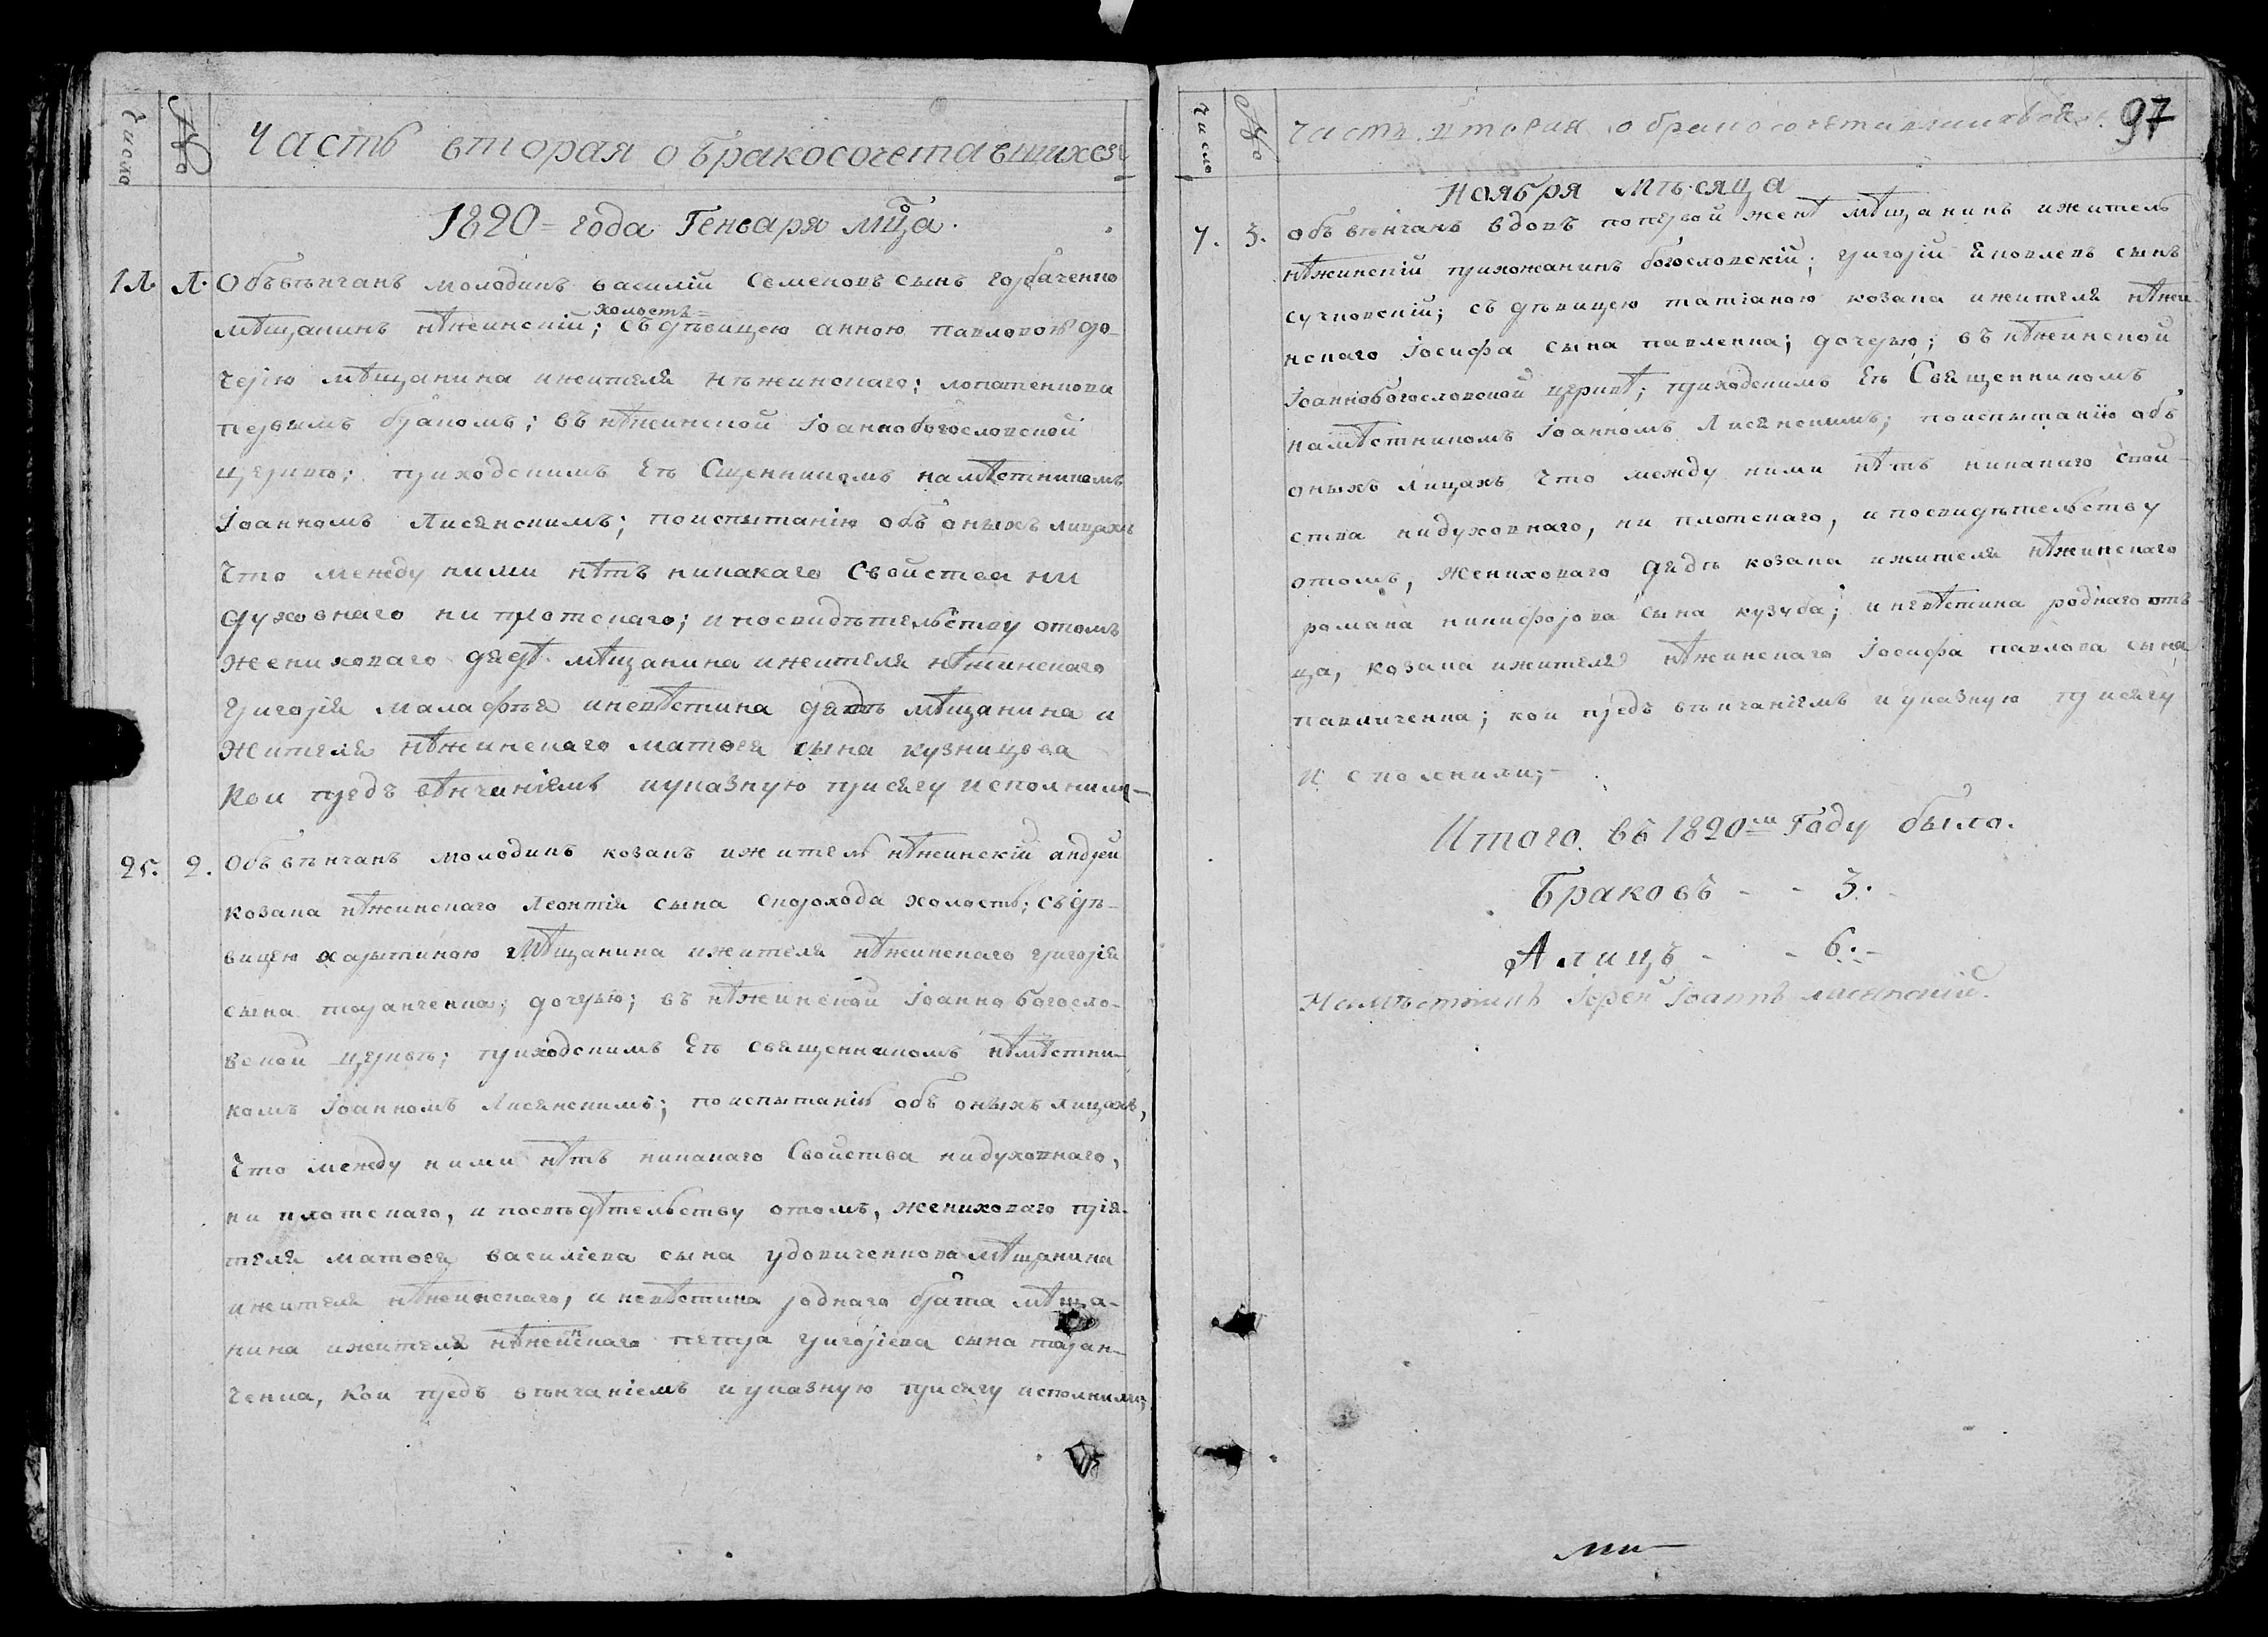 Число
№
Часть вторая о бракосочетавшихся
1820 = года Генваря мца.
11. 1. Объвѣнчанъ молодикъ василій Семеновъ сынъ горбаченко
холостъ=
мѣщанинъ нѣжинскій; съ дѣвицею анною павловою до-
черію мѣщанина ижителя нѣжинскаго; лопатенкова
первымъ бракомъ; въ нѣжинской Іоаннобогословской
церквѣ; приходскимъ Еѣ Сщенникомъ намѣстникомъ
Іоанномъ Лисянскимъ; поиспытанію объ оныхъ лицахъ
Что между ними нѣтъ никакаго Свойства ни
духовнаго ни плотскаго; и посвидѣтельству отомъ
жениховаго дядѣ мѣщанина ижителя нѣжинскаго
григорія малафѣя иневѣстина дядѣ мѣщанина и
Жителя нѣжинскаго матѳея сына кузнецова
Кои предъ вѣнчаніямъ иуказную присягу исполнили—
25. 2. Объвѣнчанъ молодикъ козакъ ижитель нѣжинскій андрей
козака нѣжинскаго Леонтія сына скорохода холостъ; съ дѣ-
вицею харытиною мѣщанина ижителя нѣжинскаго григорія
сына таранченка; дочерью; въ нѣжинской Іоаннобогосло-
вской церквѣ; приходскимъ Еѣ священникомъ нѣмѣстни-
комъ Іоанномъ Лисянскимъ; поиспытанію объ оныхъ лицахъ,
Что между ними нѣтъ никакаго Свойства нидуховнаго,
ни плотскаго, и посвѣдѣтельству отомъ, жениховаго прія-
теля матѳея василіева сына удовиченкова мѣщанина
ижителя нѣжинскаго, и невѣстина роднаго брата мѣща-
нина ижителя нѣжинскаго петра григоріева сына таран-
ченка, кои предъ вѣнчаніемъ иуказную присягу исполнили;
Число
№
Часть вторая о бракосочетавшихся. 97
Ноября мѣсяца
7. 3. объвѣнчанъ вдовъ попервой женѣ мѣщанинъ ижитель
нѣжинскій прихожанинъ богословскій; григорій Яковлевъ сынъ
сучковскій; съ дѣвицею татіаною козака ижителя нѣжи-
нскаго Іосифа сына павленка; дочерью; въ нѣжинской
Іоаннобогословской церквѣ; приходскимъ Еѣ Священникомъ
намѣстникомъ Іоанномъ Лисянскимъ; поиспытанію объ
оныхъ лицахъ Что между ними нѣтъ никакаго свой-
ства нидуховнаго, ни плотскаго, и посвидѣтельству
отомъ, Жениховаго дядѣ козака ижителя нѣжинскаго
романа никифорова сына кузуба; и невѣстина роднаго отъ-
ца, козака ижителя нѣжинскаго Іосифа павлова сына
павличенка; кои предъ вѣнчаніемъ иуказную присягу
исполнили;-
Итого въ 1820м Году было.
Браковъ - - 3.
А лицъ - - 6.
Намѣстникъ Іерей Іоаннъ лисянскій.